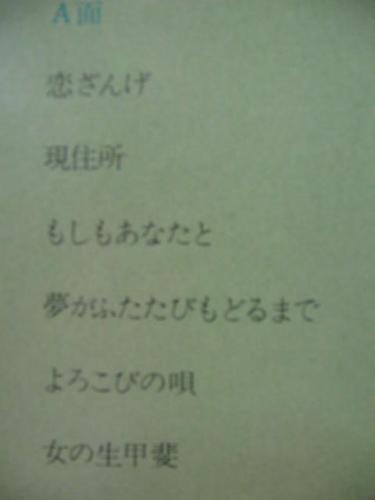 A面
恋ざんげ
現住所
もしもあなたと
夢がふたたびもどるまで
よろこびの唄
女の生甲斐